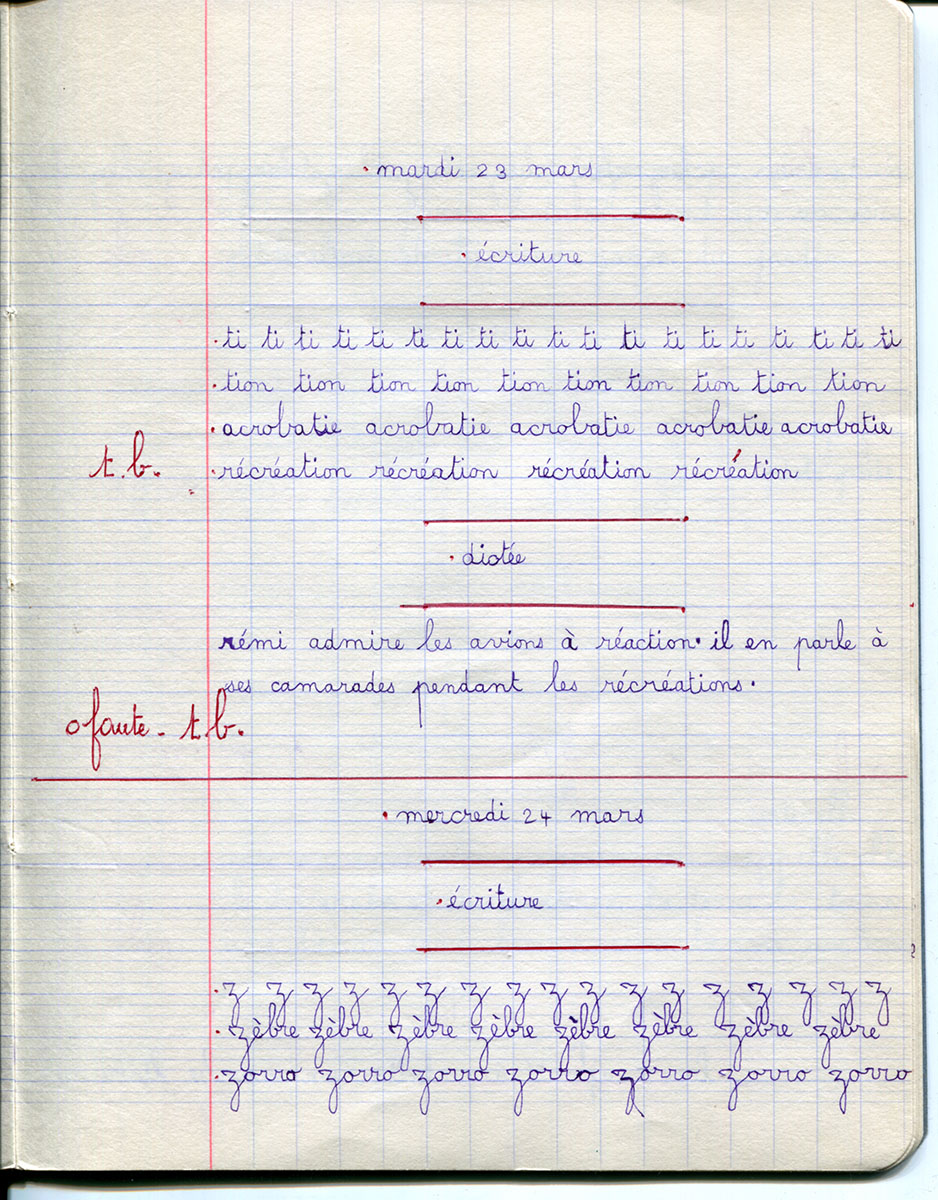 mardi 23 mars
écriture
ti ti ti ti ti ti ti ti ti ti ti ti ti ti ti ti ti ti ti
tion tion tion tion tion tion tion tion tion tion
acrobatie acrobatie acrobatie acrobatie acrobatie
t.b. récréation récréation récréation récréation
dictée
rémi admire les avions à réaction. il en parle à
ses camarades pendant les récréations.
0 faute - t.b.
mercredi 24 mars
écriture
z z z z z z z z z z z z z z z z z
zèbre zèbre zèbre zèbre zèbre zèbre zèbre zèbre
zorro zorro zorro zorro zorro zorro zorro